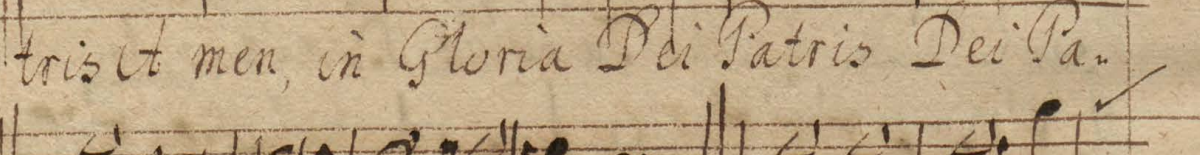 tris A men, in Gloria Dei Patris Dei Pa-